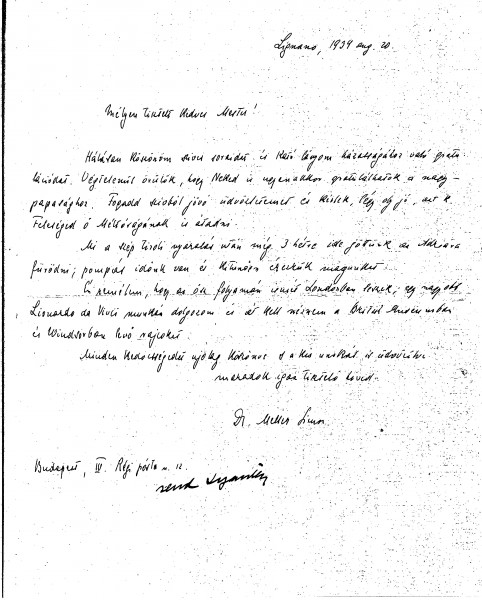 Lignano, 1934 aug. 20.
Mélyen tisztelt kedves Mester!
Hálásan köszönöm szives soraidat és Kató lányom házasságához való gratu-
lációdat. Végtelenül örülök, hogy Neked is ugyanakkor gratulálhatok a nagy-
papasághoz. Fogadd szivből jövő üdvözletemet és kérlek, légy oly jó, azt k.
Feleséged ő Méltóságának is átadni.
Mi a szép tiroli nyaralás után még 3 hétre ide jöttünk az Adriára
fürödni; pompás időnk van és kitünően érezzük magunkat.
Én remélem, hogy az ősz folyamán ismét Londonban leszek; egy nagyobb
Leonardo da Vinci munkán dolgozom és át kell néznem a British Museumban
és Windsorban levő rajzokat.
Minden kedvességedet ujolag köszönve s a kis unokát is üdvözölve
maradok igaz tisztelő hived
Dr. Meller Simon
Budapest, IV. Régi posta u. 12.